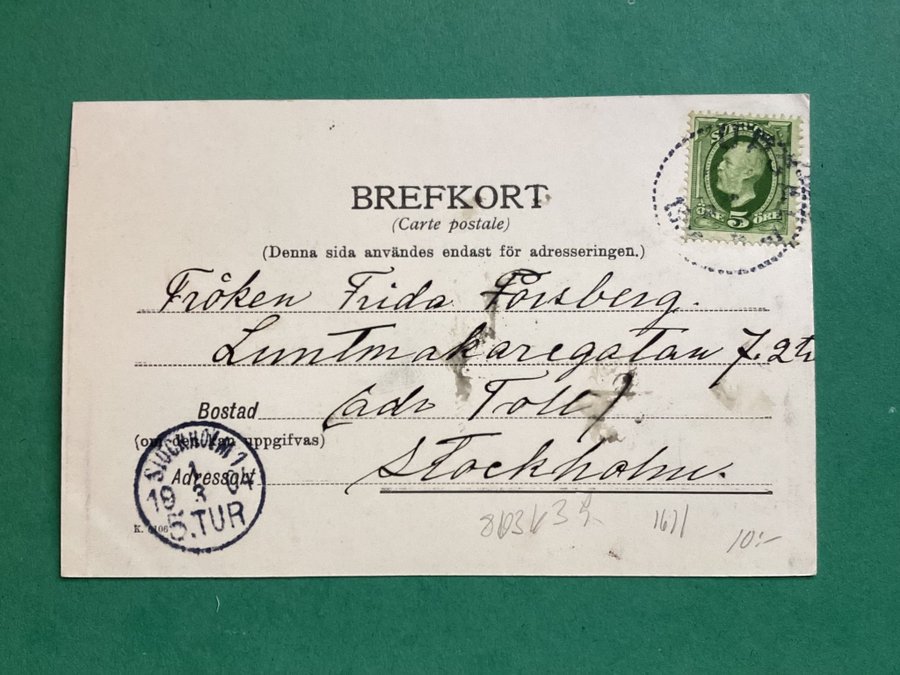 BREFKORT
(Carte postale)
(Denna sida användes endast för adresseringen.)
5 ÖRE
Fröken Frida Forsberg.
Luntmakaregatan 7. 2 tr
Bostad (adr Toll)
(om den kan uppgifvas)
Adressort Stockholm.
STOCKHOLM 1
1
19 3 04
5.TUR
10:-